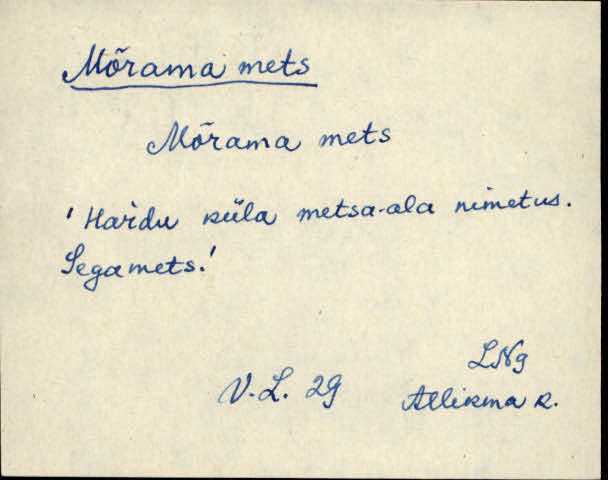 Mõrama mets
Mõrama mets
' Haidu küla metsa-ala nimetus.
Segamets.'
LNg
V.L. 29 Allikma k.